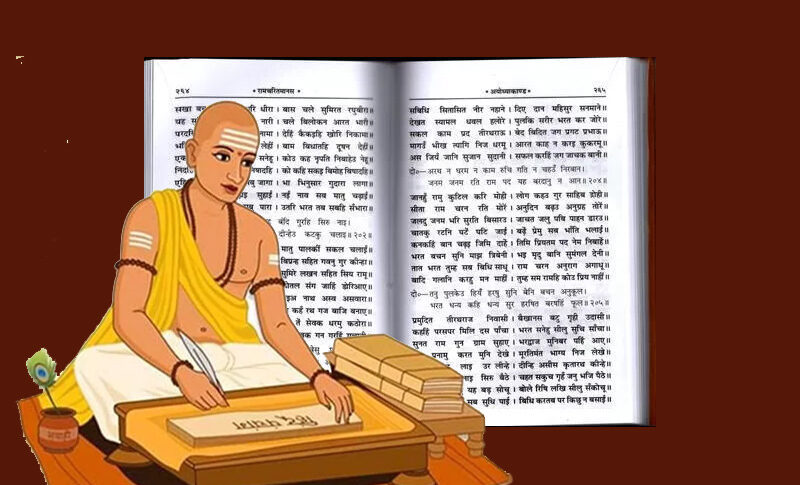 २६४ * रामचरितमानस *
सखा धीरा। बास चले सुमिरत रघुबीरा॥
चले बिलोकन आरत भारी॥
नामा। देहिं कैकइहि खोरि निकामा॥
लेहीं। बाम बिधातहि दूषन देहीं॥
सनेहू। कोउ कह नृपति निबाहेउ नेहू॥
को कहि सकइ बिमोह बिषादहि॥
जागा। भा भिनुसार गुदारा लागा॥
सुहाईं। नईं नाव सब मातु चढ़ाईं॥
पारा। उतरि भरत तब सबहि सँभारा॥
बंदि गुरहि सिरु नाइ।
दीन्हेउ कटकु चलाइ॥ २०२॥
मातु पालकीं सकल चलाईं॥
बिप्रन्ह सहित गवनु गुर कीन्हा॥
सुमिरे लखन सहित सिय रामू॥
कोतल संग जाहिं डोरिआए॥
होइअ नाथ अस्व असवारा॥
कहँ रथ गज बाजि बनाए॥
तें सेवक धरमु कठोरा॥
गन गरहिं
* अयोध्याकाण्ड * २६५
सबिधि सितासित नीर नहाने। दिए दान महिसुर सनमाने॥
देखत स्यामल धवल हलोरे। पुलकि सरीर भरत कर जोरे॥
सकल काम प्रद तीरथराऊ। बेद बिदित जग प्रगट प्रभाऊ॥
मागउँ भीख त्यागि निज धरमू। आरत काह न करइ कुकरमू॥
अस जियँ जानि सुजान सुदानी। सफल करहिं जग जाचक बानी॥
दो०—अरथ न धरम न काम रुचि गति न चहउँ निरबान।
जनम जनम रति राम पद यह बरदानु न आन॥ २०४॥
जानहुँ रामु कुटिल करि मोही। लोग कहउ गुर साहिब द्रोही॥
सीता राम चरन रति मोरें। अनुदिन बढ़उ अनुग्रह तोरें॥
जलदु जनम भरि सुरति बिसारउ। जाचत जलु पबि पाहन डारउ॥
चातकु रटनि घटें घटि जाई। बढ़ें प्रेमु सब भाँति भलाई॥
कनकहिं बान चढ़इ जिमि दाहें। तिमि प्रियतम पद नेम निबाहें॥
भरत बचन सुनि माझ त्रिबेनी। भइ मृदु बानि सुमंगल देनी॥
तात भरत तुम्ह सब बिधि साधू। राम चरन अनुराग अगाधू॥
बादि गलानि करहु मन माहीं। तुम्ह सम रामहि कोउ प्रिय नाहीं॥
दो०—तनु पुलकेउ हियँ हरषु सुनि बेनि बचन अनुकूल।
भरत धन्य कहि धन्य सुर हरषित बरषहिं फूल॥ २०५॥
प्रमुदित तीरथराज निवासी। बैखानस बटु गृही उदासी॥
कहहिं परसपर मिलि दस पाँचा। भरत सनेहु सीलु सुचि साँचा॥
सुनत राम गुन ग्राम सुहाए। भरद्वाज मुनिबर पहिं आए॥
प्रनामु करत मुनि देखे। मूरतिमंत भाग्य निज लेखे॥
लाइ उर लीन्हे। दीन्हि असीस कृतारथ कीन्हे॥
नाइ सिरु बैठे। चहत सकुच गृहँ जनु भजि पैठे॥
यह बड़ सोचू। बोले रिषि लखि सीलु सँकोचू॥
सब सुधि पाई। बिधि करतब पर किछु न बसाई॥